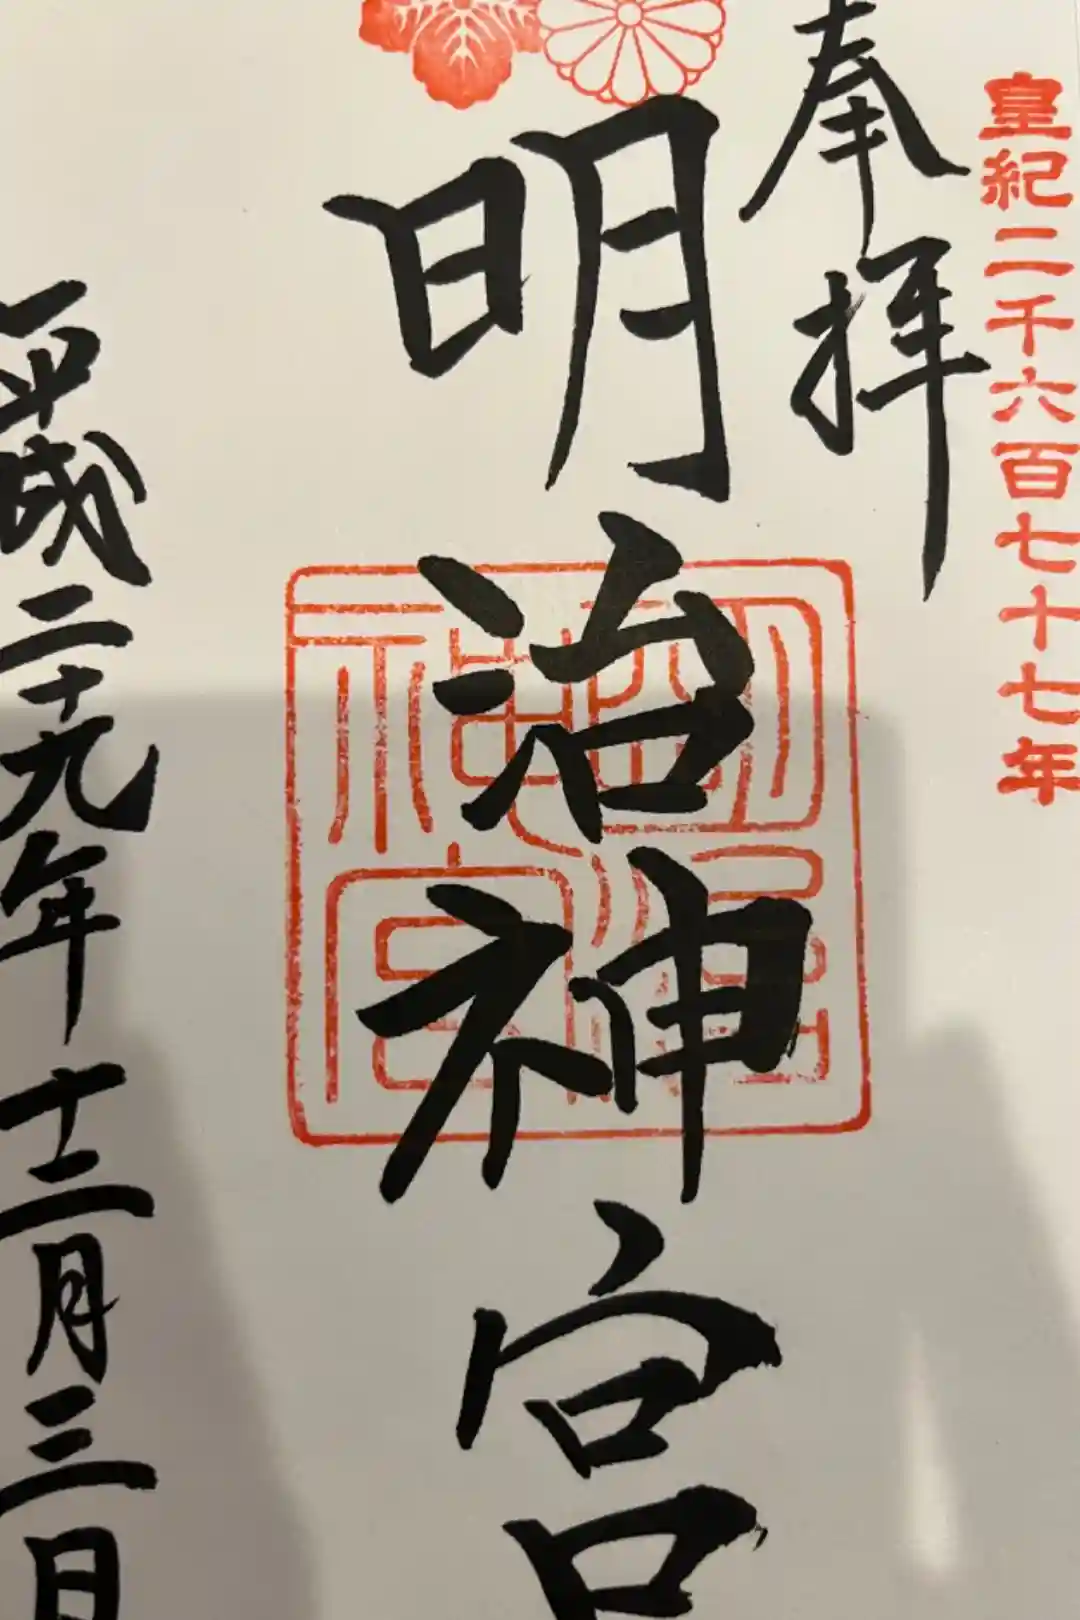 皇紀二千六百七十七年
奉拝
明治神宮
明治神宮
平成二十九年十二月三日